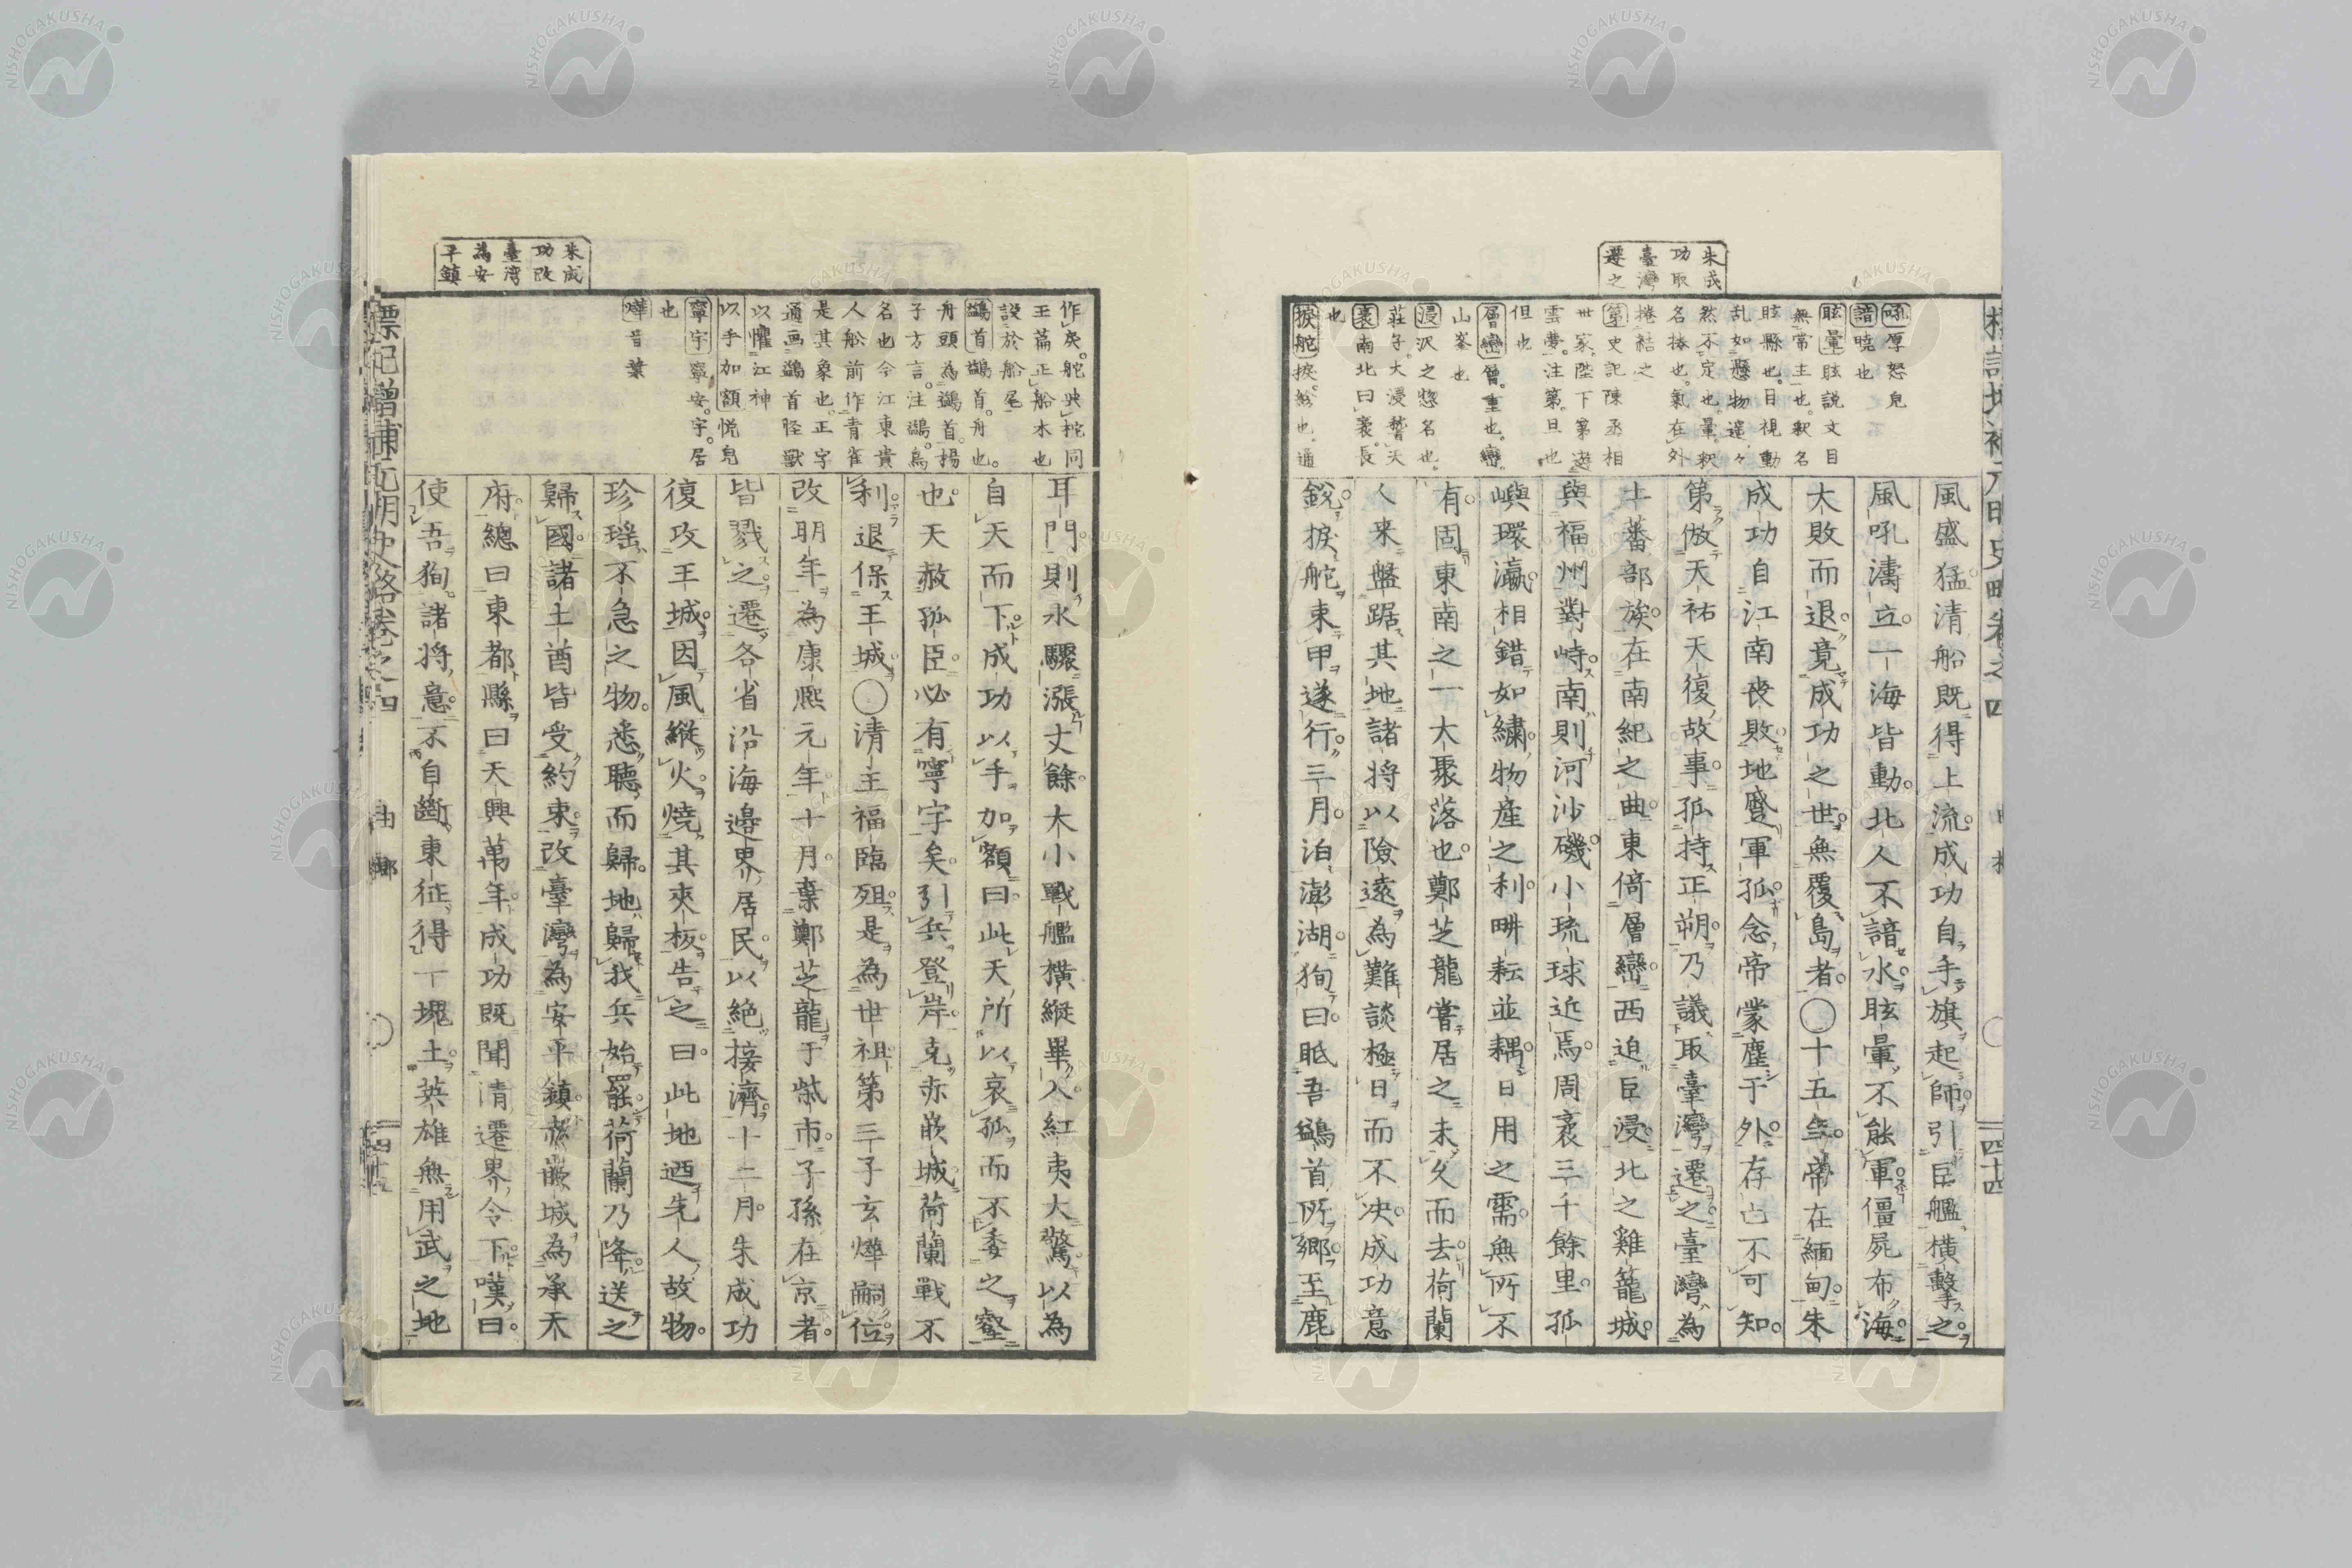 朱成
功取
臺灣
遷之
吼厚怒皃
諳曉也
眩暈眩説文目
無常主也。釈名
眩縣也。目視動
乱如懸物遥々
然不定也。暈。釈
名捲也。氣在外
捲結之
第史記陳丞相
世家。陛下第遊
雲夢。注第。旦也
但也
層巒層。重也。巒。
山峯也
浸沢之惣名也。
莊子。大浸。稽天
袤南北曰袤。長
也
捩舵捩。紾也。通
風盛猛清船既得上流。成功自手旗起師。引巨艦橫擊之。
風吼濤立。一海皆動。北人不諳水。眩暈不能軍。僵屍布海。
大敗而退。竟成功之世。無覆島者。〇十五年。帝在緬甸。朱
成功自江南喪敗。地蹙軍孤。念帝蒙塵于外。存亡不可知。
第倣天祐天復故事。孤持正朔。乃議取臺灣遷之。臺灣為
土蕃部族。在南紀之曲。東倚層巒。西迫巨浸。北之雞籠城。
與福州對峙。南則河沙磯。小琉球近焉。周袤三千餘里。孤
嶼環瀛。相錯如繍。物産之利。畊耘並耦。日用之需。無所不
有。固東南之一大聚落也。鄭芝龍嘗居之。未久而去。荷蘭
人来盤踞其地。諸将以險遠為難。談極日而不决。成功意
銳。捩舵束甲遂行。三月。泊澎湖。狥曰。眡吾鷁首所郷。至鹿
四十四
朱成
功改
臺湾
為安
平鎮
作戾。舵與柁同
王篇正船木也
設於船尾
鷁首鷁首。舟也。
舟頭為鷁首。楊
子方言。注鷁。鳥
名也今江東貴
人船前作青雀
是其象也。正字
通画鷁首怪獣
以懼江神
以手加額悦皃
寧宇寧。安。宇。居
也
燁音葉
耳門。則水驟漲丈餘。大小戰艦橫縱畢入。紅夷大驚。以為
自天而下。成功以手加額曰。此天所以哀孤而不委之壑
也。天赦孤臣。必有寧宇矣。引兵登岸。克赤嵌城。荷蘭戰不
利。退保王城。〇清主福臨殂。是為世祖。第三子玄燁嗣位。
改明年為康熈元年。十月。棄鄭芝龍于柴市。子孫在京者。
皆戮之。遷各省沿海邊界居民。以絶接濟。十二月。朱成功
復攻王城。因風縦火。燒其夾板。告之曰。此地迺先人故物。
珍瑶不急之物。悉聽而歸。地歸我兵始罷。荷蘭乃降。送之
歸國。諸土酋皆受約束。改臺灣為安平鎮。赤嵌城為承天
府。總曰東都。縣曰天興萬年。成功既聞清遷界令下嘆曰。
使吾狥諸将意。不自斷東征。得一塊土。英雄無用武之地
標記増補元明史略卷之四
四十五